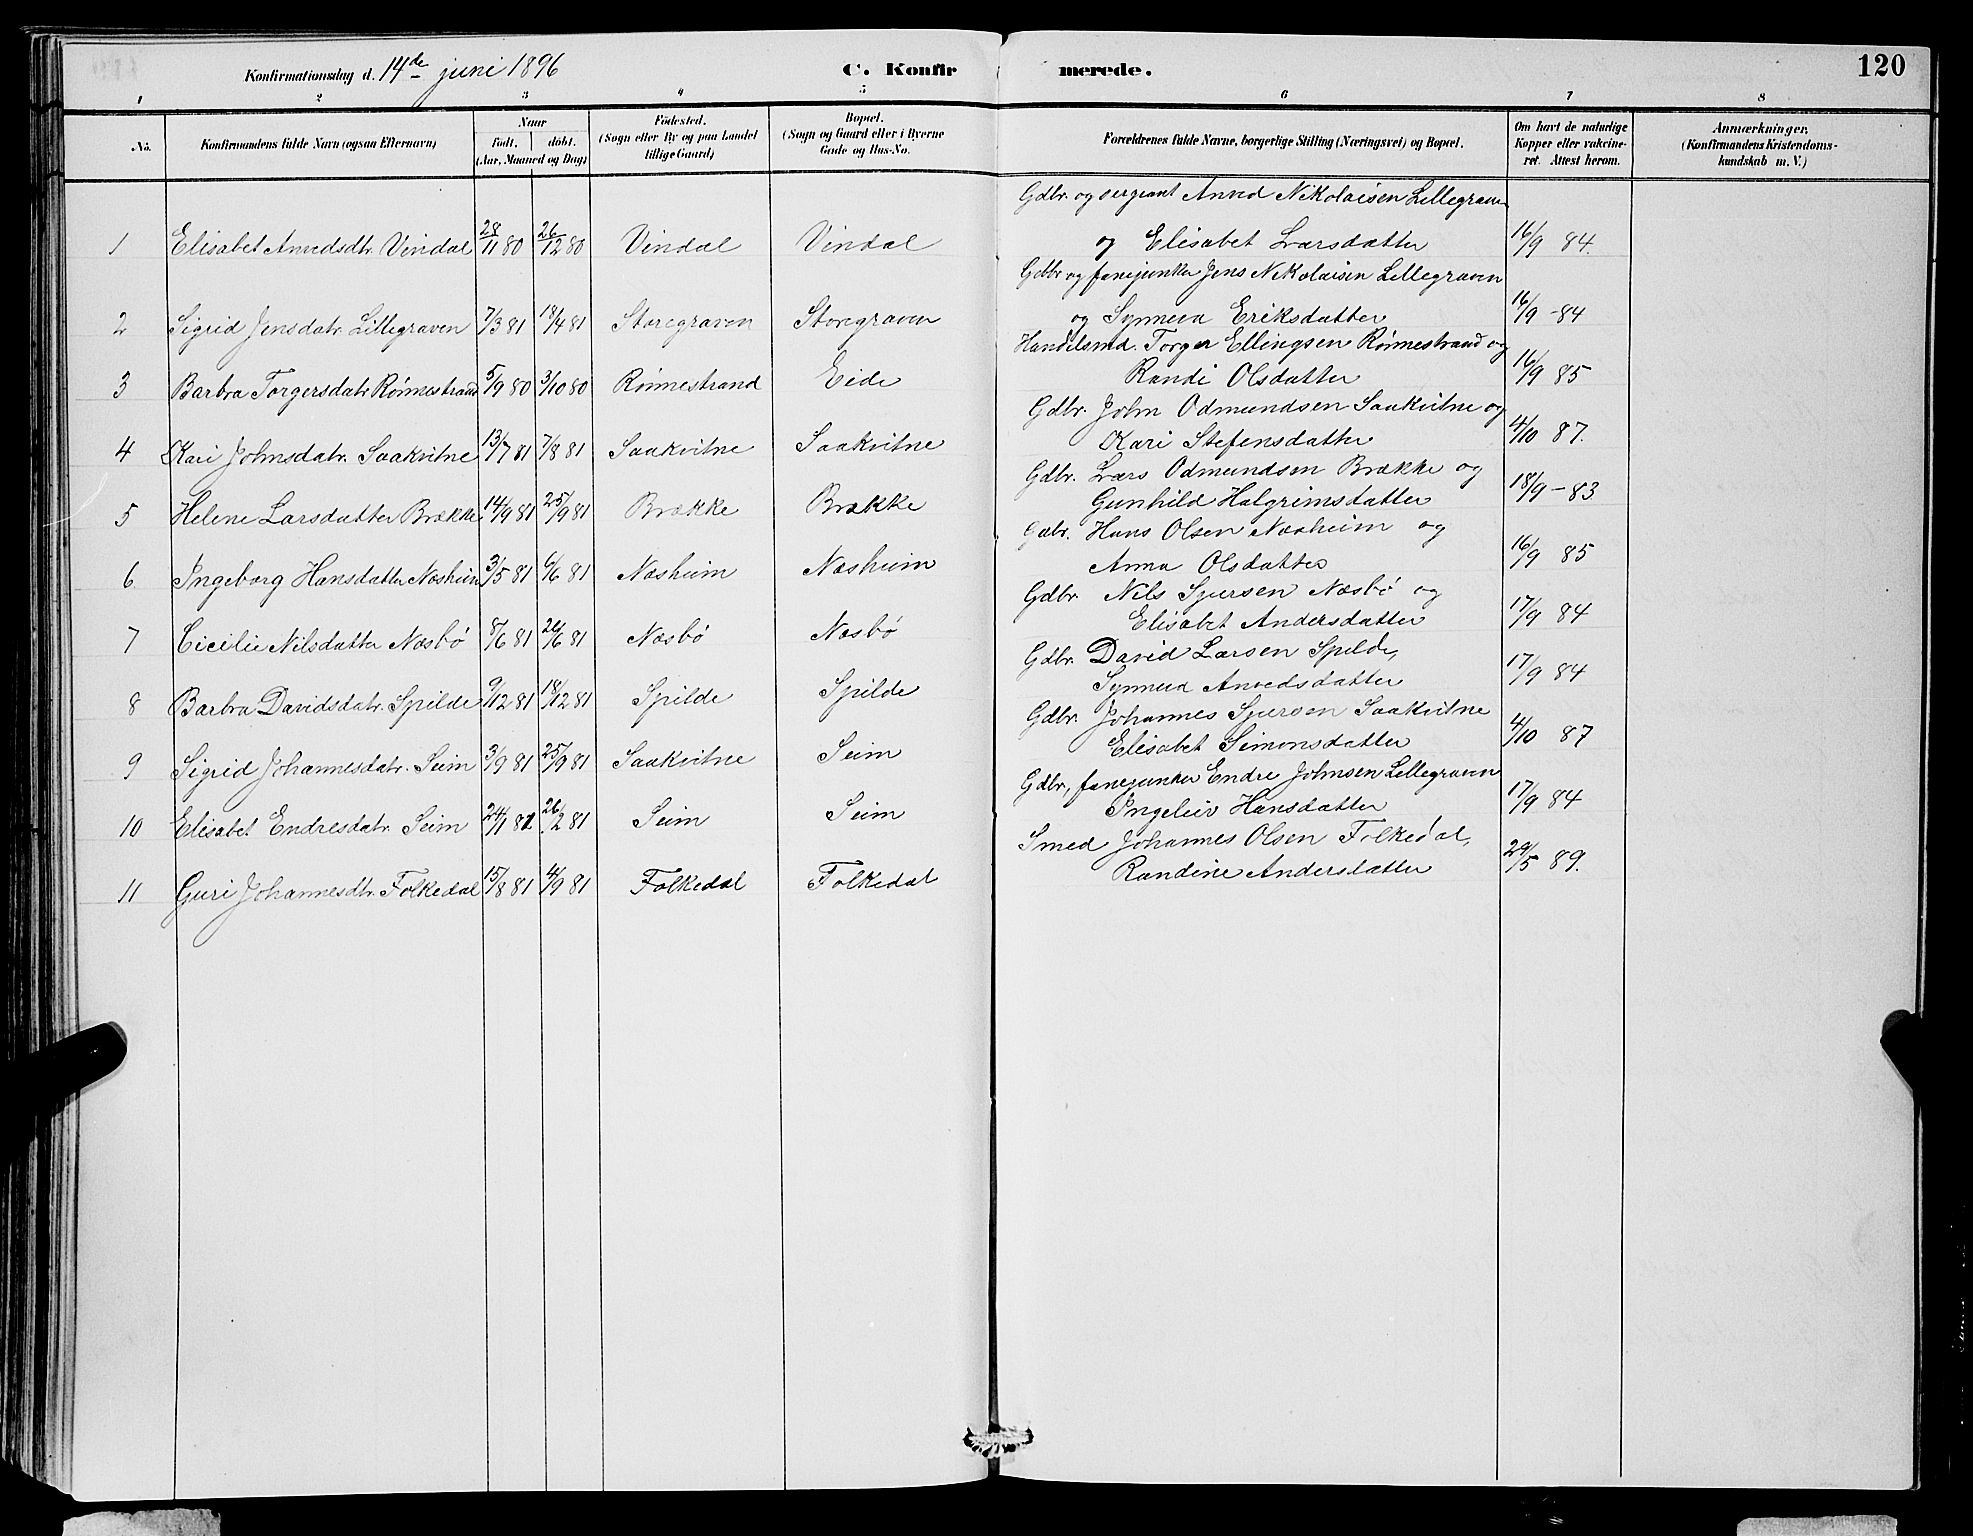 Konfirmationsdag d. 14de juni 1896 C. Konfirmerede. 120
1 2 3 4 5 6 7 8
No. Konfirmandens fulde Navn (ogsaa Efternavn) Naar født, døbt. (Aar, Maaned og Dag) Fødested. (Sogn eller By og paa Landet tillige Gaard) Bopæl. (Sogn og Gaard eller i Byerne Gade og Hus-No. Forældrenes fulde Navne, borgerlige Stilling (Næringsvei) og Bopæl. Om havt de naturlige Kopper eller vakcineret. Attest herom. Anmærkninger. (Konfirmandens Kristendomskundskab m. V.)
Gdbr. og sergeant Anved Nikolaisen Lillegraven
1 Elisabet Anvedsdtr. Vindal 28/11 80 26/12 80 Vindal Vindal og Elisabet Larsdatter 16/9 84.
Gdbr og fanejunker Jens Nikolaisen Lillegraven
2 Sigrid Jensdatr. Lillegraven 7/3 81 18/4 81 Storegraven Storegraven og Synneva Eriksdatter 16/9 -84
Handelsmd. Torger Ellingsen Rónnestrand og
3 Barbra Torgersdatr Rónnestrand 5/9 80 3/10 80 Rónnestrand Eide Randi Olsdatter 16/9 85
Gdbr. John Odmundsen Saakvitne og
4 Kari Johnsdatr. Saakvitne 13/7 81 7/8 81 Saakvitne Saakvitne Kari Stefensdatter 4/10 87.
Gdbr. Lars Odmundsen Brække og
5 Helene Larsdatter Brække 14/9 81 25/9 81 Brække Brække Gunhild Halgrimsdatter 18/9 - 83
Gdbr. Hans Olsen Næsheim og
6 Ingeborg Hansdatter Næsheim 3/5 81 6/6 81 Næsheim Næsheim Anna Olsdatter 16/9 85
Gdbr. Nils Sjursen Næsbó og
7 Cicilie Nilsdatter Næsbó 8/6 81 26/6 81 Næsbó Næsbó Elisabet Andersdatter 17/9 84
Gdbr. David Larsen Spilde,
8 Barbra Davidsdatr. Spilde 9/12 81 18/12 81 Spilde Spilde Synneva Anvedsdatter 17/9 84
Gdbr. Johannes Sjursen Saakvitne
9 Sigrid Johannesdatr. Seim 3/9 81 25/9 81 Saakvitne Seim Elisabet Simonsdatter 4/10 87
Gdbr, fanejunker Endre Johnsen Lillegraven
10 Elisabet Endresdatr. Seim 24/1 81 26/2 81 Seim Seim Ingeleiv Hansdatter 17/9 84
Smed Johannes Olsen Folkedal,
11 Guri Johannesdtr. Folkedal 15/8 81 4/9 81 Folkedal Folkedal Randine Andersdatter 29/5 89.